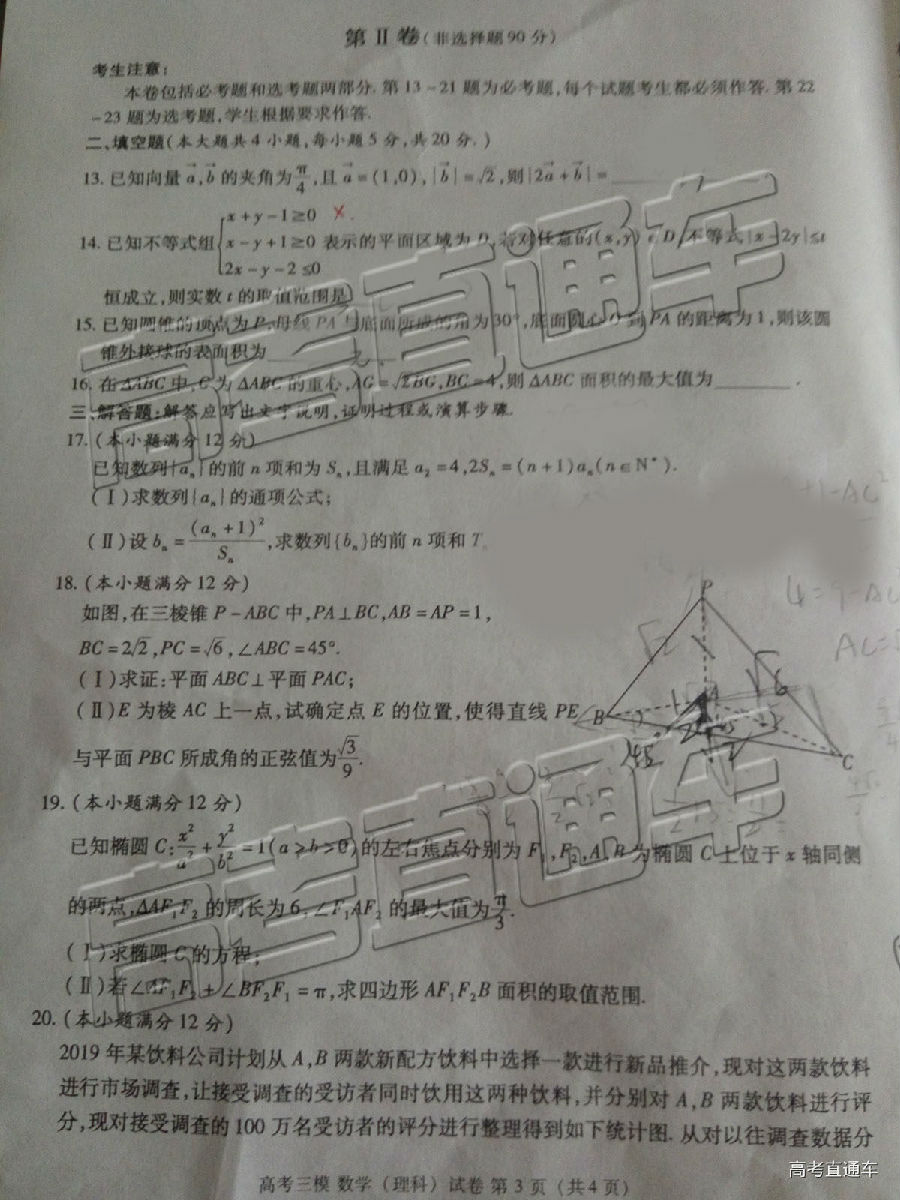 第 Ⅱ 卷(非选择题90分)
考生注意:
本卷包括必考题和选考题两部分.第13-21题为必考题,每个试题考生都必须作答.第22
-23题为选考题,学生根据要求作答.
二、填空题(本大题共4小题,每小题5分,共20分.)
13.已知向量 a⃗,b⃗ 的夹角为π/4,且 a⃗=(1,0),|b⃗|=√2,则|2a⃗+b⃗|=________
x+y-1≥0 ×.
14.已知不等式组{x-y+1≥0 表示的平面区域为D,若对任意的(x,y)∈D,不等式|x-2y|≤t
2x-y-2≤0
恒成立,则实数 t 的取值范围是
15.已知圆锥的顶点为P,母线PA与底面所成的角为30°,底面圆心O到PA的距离为1,则该圆
锥外接球的表面积为________
16.在△ABC中,G为△ABC的重心,AG=√2BG,BC=4,则△ABC面积的最大值为________.
三、解答题:解答应写出文字说明,证明过程或演算步骤.
17.(本小题满分12分)
已知数列{aₙ}的前n项和为Sₙ,且满足a₂=4,2Sₙ=(n+1)aₙ(n∈N*).
(Ⅰ)求数列{aₙ}的通项公式;
(Ⅱ)设bₙ=(aₙ+1)²/Sₙ,求数列{bₙ}的前n项和Tₙ
18.(本小题满分12分)
如图,在三棱锥P-ABC中,PA⊥BC,AB=AP=1,
BC=2√2,PC=√6,∠ABC=45°.
(Ⅰ)求证:平面ABC⊥平面PAC;
(Ⅱ)E为棱AC上一点,试确定点E的位置,使得直线PE
与平面PBC所成角的正弦值为√3/9.
P
A
B
C
19.(本小题满分12分)
已知椭圆C:x²/a²+y²/b²=1(a>b>0)的左右焦点分别为F₁,F₂,A,B为椭圆C上位于x轴同侧
的两点,△AF₁F₂的周长为6,∠F₁AF₂的最大值为π/3.
(Ⅰ)求椭圆C的方程;
(Ⅱ)若∠AF₁F₂+∠BF₂F₁=π,求四边形AF₁F₂B面积的取值范围.
20.(本小题满分12分)
2019年某饮料公司计划从A,B两款新配方饮料中选择一款进行新品推介,现对这两款饮料
进行市场调查,让接受调查的受访者同时饮用这两种饮料,并分别对A,B两款饮料进行评
分,现对接受调查的100万名受访者的评分进行整理得到如下统计图.从对以往调查数据分
高考三模 数学(理科)试卷 第3页(共4页)
高考直通车
高考直通车
高考直通车